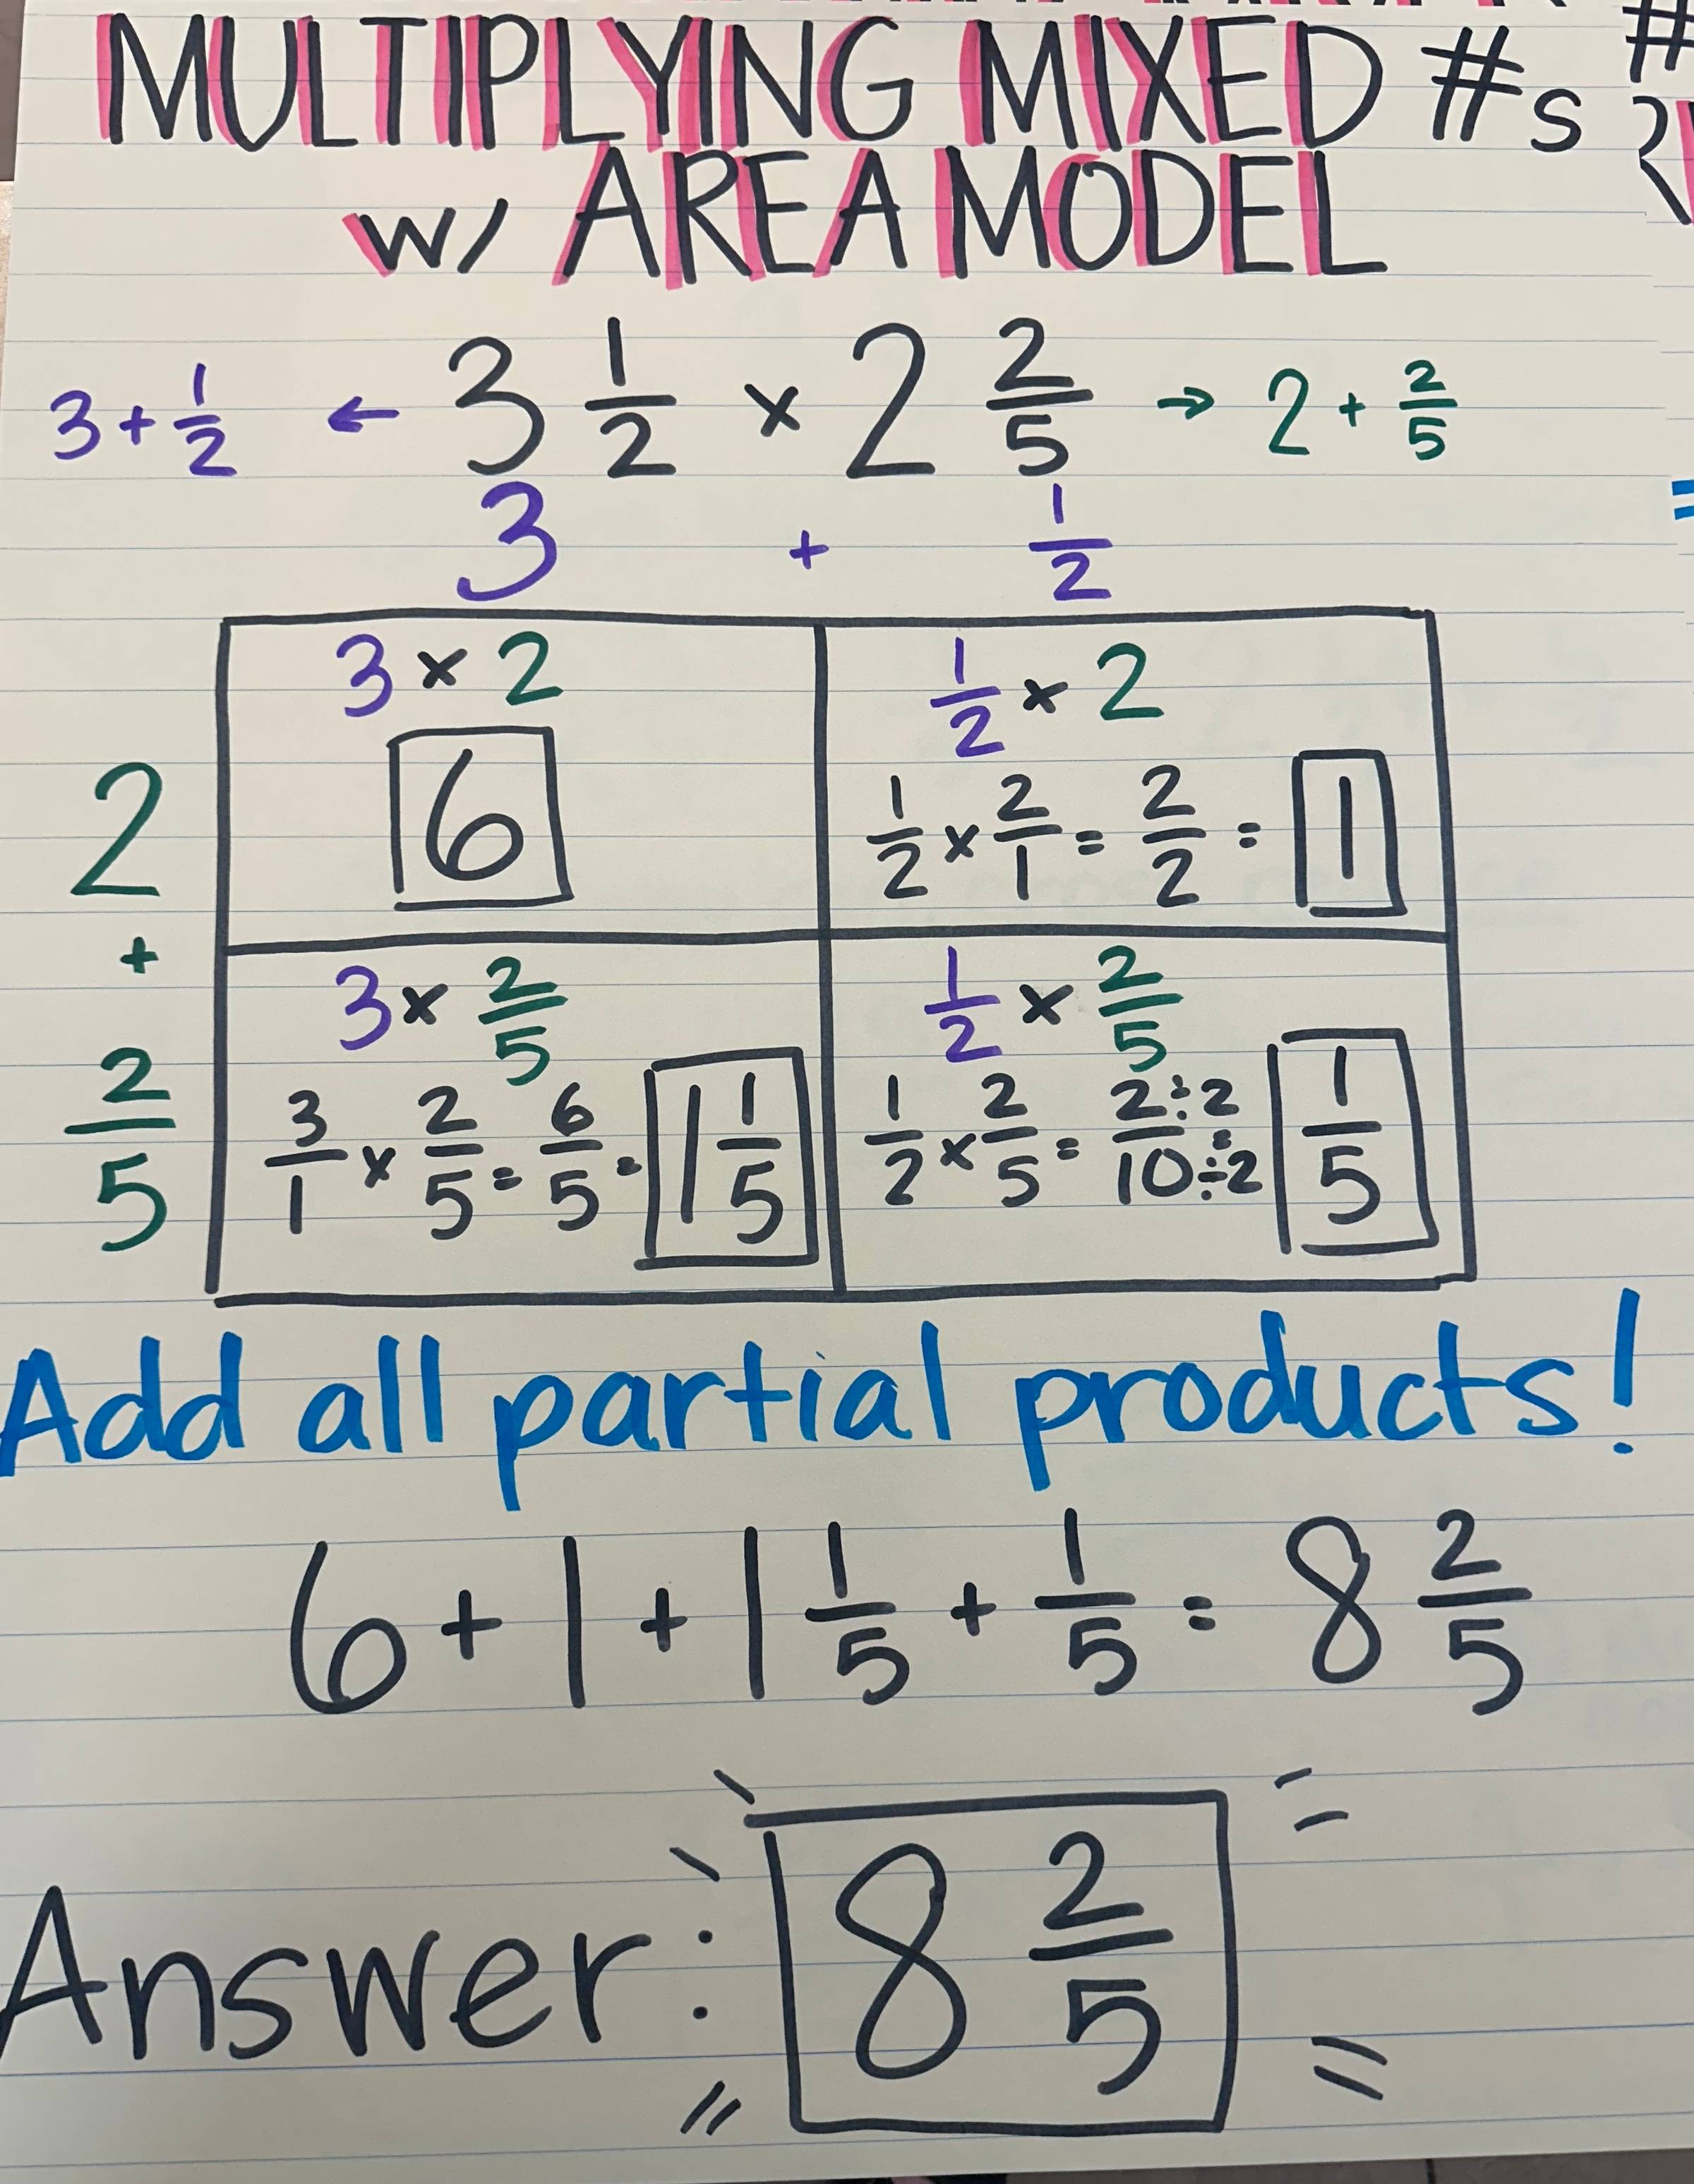 MULTIPLYING MIXED #s
w/ AREA MODEL
3 + 1/2 ← 3 1/2 × 2 2/5 → 2 + 2/5
3 + 1/2
2 + 2/5
3 × 2
6
1/2 × 2
1/2 × 2/1 = 2/2 = 1
3 × 2/5
3/1 × 2/5 = 6/5 = 1 1/5
1/2 × 2/5
1/2 × 2/5 = 2÷2/10÷2 = 1/5
Add all partial products!
6 + 1 + 1 1/5 + 1/5 = 8 2/5
Answer: 8 2/5